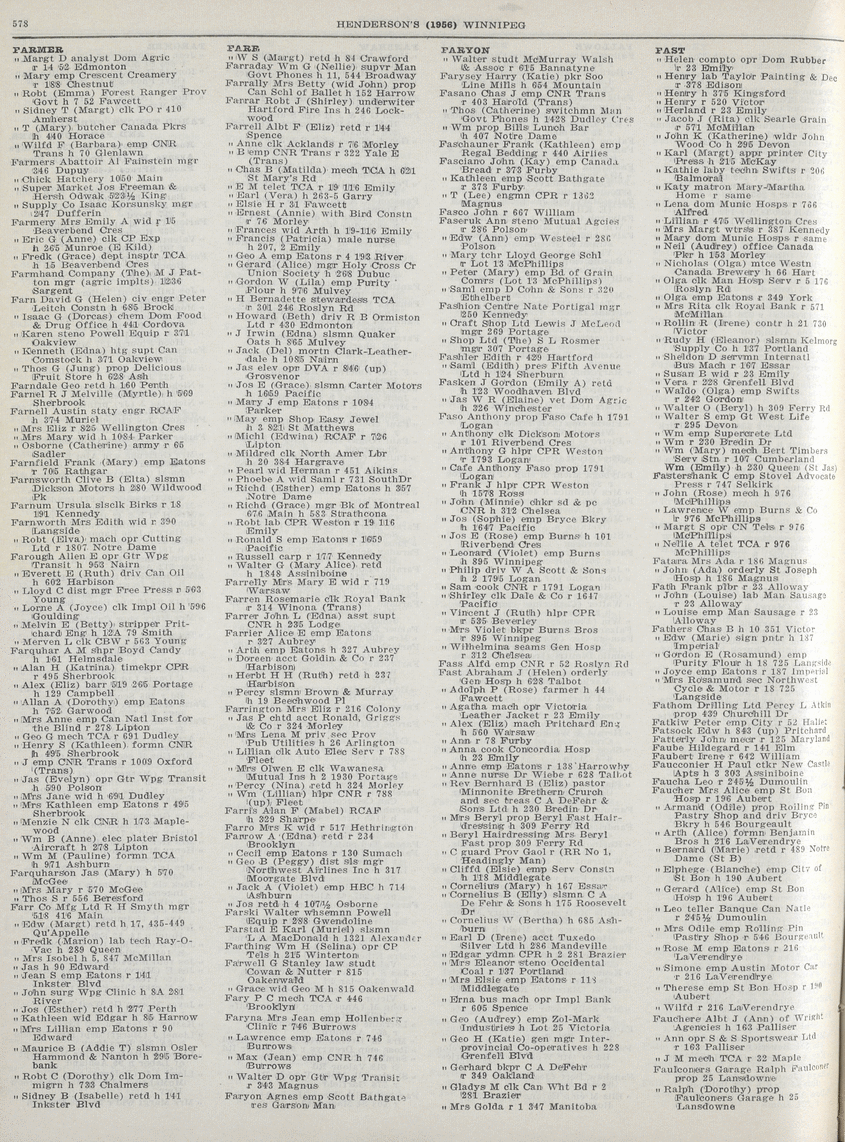 578
HENDERSON'S (1956) WINNIPEG
FARMER
" Margt D analyst Dom Agric
r 14 52 Edmonton
" Mary emp Crescent Creamery
r 188 Chestnut
" Robt (Emma) Forest Ranger Prov
Govt h 7 52 Fawcett
" Sidney T (Margt) clk PO r 410
Amherst
" T (Mary) butcher Canada Pkrs
h 440 Horace
" Wilfd F (Barbara) emp CNR
Trans h 70 Glenlawn
Farmers Abattoir Al Fainstein mgr
346 Dupuy
" Chick Hatchery 1050 Main
" Super Market Jos Freeman &
Hersh Odwak 523½ King
" Supply Co Isaac Korsunsky mgr
247 Dufferin
Farmery Mrs Emily A wid r 15
Beaverbend Cres
" Eric G (Anne) clk CP Exp
h 265 Munroe (E Kild)
" Fredk (Grace) dept insptr TCA
h 15 Beaverbend Cres
Farmhand Company (The) M J Pat-
ton mgr (agric implts) 1236
Sargent
Farn David G (Helen) civ engr Peter
Leitch Constn h 685 Brock
" Isaac G (Dorcas) chem Dom Food
& Drug Office h 441 Cordova
" Karen steno Powell Equip r 371
Oakview
" Kenneth (Edna) htg supt Can
Comstock h 371 Oakview
" Thos G (Jung) prop Delicious
Fruit Store h 628 Ash
Farndale Geo retd h 160 Perth
Farnel R J Melville (Myrtle) h 569
Sherbrook
Farnell Austin staty engr RCAF
h 374 Muriel
" Mrs Eliz r 825 Wellington Cres
" Mrs Mary wid h 1084 Parker
" Osborne (Catherine) army r 66
Sadler
Farnfield Frank (Mary) emp Eatons
r 705 Rathgar
Farnsworth Clive B (Elta) slsmn
Dickson Motors h 280 Wildwood
Pk
Farnum Ursula slsclk Birks r 18
191 Kennedy
Farnworth Mrs Edith wid r 390
Langside
" Robt (Elva) mach opr Cutting
Ltd r 1807 Notre Dame
Farough Allen E opr Gtr Wpg
Transit h 953 Nairn
" Everett E (Ruth) driv Can Oil
h 602 Harbison
" Lloyd C dist mgr Free Press r 563
Young
" Lorne A (Joyce) clk Impl Oil h 596
Goulding
" Melvin E (Betty) stripper Prit-
chard Eng h 12A 79 Smith
" Merven L clk CBW r 563 Young
Farquhar A M shpr Boyd Candy
h 161 Helmsdale
" Alan H (Katrina) timekpr CPR
r 495 Sherbrook
" Alex (Eliz) barr 519 265 Portage
h 129 Campbell
" Allan A (Dorothy) emp Eatons
h 752 Garwood
" Mrs Anne emp Can Natl Inst for
the Blind r 278 Lipton
" Geo G mech TCA r 691 Dudley
" Henry S (Kathleen) formn CNR
h 495 Sherbrook
" J emp CNR Trans r 1009 Oxford
(Trans)
" Jas (Evelyn) opr Gtr Wpg Transit
h 590 Polson
" Mrs Jane wid h 691 Dudley
" Mrs Kathleen emp Eatons r 495
Sherbrook
" Menzie N clk CNR h 173 Maple-
wood
" Wm B (Anne) elec plater Bristol
Aircraft h 278 Lipton
" Wm M (Pauline) formn TCA
h 971 Ashburn
Farquharson Jas (Mary) h 570
McGee
" Mrs Mary r 570 McGee
" Thos S r 556 Beresford
Farr Co Mfg Ltd R H Smyth mgr
518 416 Main
" Edw (Margt) retd h 17, 435-449
Qu'Appelle
" Fredk (Marion) lab tech Ray-O-
Vac h 289 Queen
" Mrs Isobel h 5, 847 McMillan
" Jas h 90 Edward
" Jean S emp Eatons r 141
Inkster Blvd
" John surg Wpg Clinic h 8A 281
River
" Jos (Esther) retd h 277 Perth
" Kathleen wid Edgar h 85 Harrow
" Mrs Lillian emp Eatons r 90
Edward
" Maurice B (Addie T) slsmn Osler
Hammond & Nanton h 295 Bore-
bank
" Robt C (Dorothy) clk Dom Im-
migrn h 733 Chalmers
" Sidney B (Isabelle) retd h 141
Inkster Blvd
FARR
" W S (Margt) retd h 84 Crawford
Farraday Wm G (Nellie) supvr Man
Govt Phones h 11, 544 Broadway
Farrally Mrs Betty (wid John) prop
Can Schl of Ballet h 152 Harrow
Farrar Robt J (Shirley) underwiter
Hartford Fire Ins h 246 Lock-
wood
Farrell Albt F (Eliz) retd r 144
Spence
" Anne clk Acklands r 76 Morley
" B emp CNR Trans r 322 Yale E
(Trans)
" Chas B (Matilda) mech TCA h 621
St Mary's Rd
" E M telet TCA r 19 116 Emily
" Earl (Vera) h 263-5 Garry
" Elsie H r 31 Fawcett
" Ernest (Annie) with Bird Constn
r 76 Morley
" Frances wid Arth h 19-116 Emily
" Francis (Patricia) male nurse
h 207, 2 Emily
" Geo A emp Eatons r 4 193 River
" Gerard (Alice) mgr Holy Cross Cr
Union Society h 268 Dubuc
" Gordon W (Lila) emp Purity
Flour h 976 Mulvey
" H Bernadette stewardess TCA
r 301 246 Roslyn Rd
" Howard (Beth) driv R B Ormiston
Ltd r 430 Edmonton
" J Irwin (Edna) slsmn Quaker
Oats h 865 Mulvey
" Jack (Del) mortn Clark-Leather-
dale h 1085 Nairn
" Jas elev opr DVA r 846 (up)
Grosvenor
" Jos E (Grace) slsmn Carter Motors
h 1659 Pacific
" Mary J emp Eatons r 1084
Parker
" May emp Shop Easy Jewel
h 3 821 St Matthews
" Michl (Edwina) RCAF r 726
Lipton
" Mildred clk North Amer Lbr
h 20 384 Hargrave
" Pearl wid Herman r 451 Aikins
" Phoebe A wid Saml r 731 SouthDr
" Richd (Esther) emp Eatons h 357
Notre Dame
" Richd (Grace) mgr Bk of Montreal
676 Main h 583 Strathcona
" Robt lab CPR Weston r 19 116
Emily
" Ronald S emp Eatons r 1659
Pacific
" Russell carp r 177 Kennedy
" Walter G (Mary Alice) retd
h 1848 Assiniboine
Farrelly Mrs Mary E wid r 719
Warsaw
Farren Rosemarie clk Royal Bank
r 314 Winona (Trans)
Farrer John L (Edna) asst supt
CNR h 235 Lodge
Farrier Alice E emp Eatons
r 327 Aubrey
" Arth emp Eatons h 327 Aubrey
" Doreen acct Goldin & Co r 237
Harbison
" Herbt H H (Ruth) retd h 237
Harbison
" Percy slsmn Brown & Murray
h 19 Beechwood Pl
Farrington Mrs Eliz r 216 Colony
" Jas P chtd acct Ronald, Griggs
& Co r 324 Morley
" Mrs Lena M priv sec Prov
Pub Utilities h 26 Arlington
" Lillian clk Auto Elec Serv r 788
Fleet
" Mrs Olwen E clk Wawanesa
Mutual Ins h 2 1930 Portage
" Percy (Nina) retd h 324 Morley
" Wm (Lillian) hlpr CNR r 788
(up) Fleet
Farris Alan F (Mabel) RCAF
h 329 Sharpe
Farro Mrs K wid r 517 Hethrington
Farrow A (Edna) retd r 234
Brooklyn
" Cecil emp Eatons r 130 Sumach
" Geo B (Peggy) dist sls mgr
Northwest Airlines Inc h 317
Moorgate Blvd
" Jack A (Violet) emp HBC h 714
Ashburn
" Jos retd h 4 107½ Osborne
Farski Walter whsemnn Powell
Equip r 288 Gwendoline
Farstad E Karl (Muriel) slsmn
L A MacDonald h 1321 Alexander
Farthing Wm H (Selina) opr CP
Tels h 215 Winterton
Farwell G Stanley law studt
Cowan & Nutter r 815
Oakenwald
" Grace wid Geo M h 815 Oakenwald
Fary P C mech TCA r 446
Brooklyn
Faryna Mrs Jean emp Hollenberg
Clinic r 746 Burrows
" Lawrence emp Eatons r 746
Burrows
" Max (Jean) emp CNR h 746
Burrows
" Walter D opr Gtr Wpg Transit
r 343 Magnus
Faryon Agnes emp Scott Bathgate
res Garson Man
FARYON
" Walter studt McMurray Walsh
& Assoc r 615 Bannatyne
Farysey Harry (Katie) pkr Soo
Line Mills h 654 Mountain
Fasano Chas J emp CNR Trans
r 403 Harold (Trans)
" Thos (Catherine) switchmn Man
Govt Phones h 1428 Dudley Cres
" Wm prop Bills Lunch Bar
h 407 Notre Dame
Faschauner Frank (Kathleen) emp
Regal Bedding r 440 Airlies
Fasciano John (Kay) emp Canada
Bread r 373 Furby
" Kathleen emp Scott Bathgate
r 373 Furby
" T (Lee) engmn CPR r 1362
Magnus
Fasco John r 667 William
Faseruk Ann steno Mutual Agcies
r 286 Polson
" Edw (Ann) emp Westeel r 286
Polson
" Mary tchr Lloyd George Schl
r Lot 13 McPhillips
" Peter (Mary) emp Bd of Grain
Comrs (Lot 13 McPhillips)
" Saml emp D Cohn & Sons r 320
Ethelbert
Fashion Centre Nate Portigal mgr
250 Kennedy
" Craft Shop Ltd Lewis J McLeod
mgr 269 Portage
" Shop Ltd (The) S L Rosmer
mgr 307 Portage
Fashler Edith r 429 Hartford
" Saml (Edith) pres Fifth Avenue
Ltd h 124 Sherburn
Fasken J Gordon (Emily A) retd
h 123 Woodhaven Blvd
" Jas W R (Elaine) vet Dom Agric
h 326 Winchester
Faso Anthony prop Faso Cafe h 1791
Logan
" Anthony clk Dickson Motors
r 101 Riverbend Cres
" Anthony G hlpr CPR Weston
r 1793 Logan
" Cafe Anthony Faso prop 1791
Logan
" Frank J hlpr CPR Weston
h 1578 Ross
" John (Minnie) chkr sd & pc
CNR h 312 Chelsea
" Jos (Sophie) emp Bryce Bkry
h 1647 Pacific
" Jos E (Rose) emp Burns h 101
Riverbend Cres
" Leonard (Violet) emp Burns
h 895 Winnipeg
" Philip driv W A Scott & Sons
h 2 1795 Logan
" Sam cook CNR r 1791 Logan
" Shirley clk Dale & Co r 1647
Pacific
" Vincent J (Ruth) hlpr CPR
r 535 Beverley
" Mrs Violet bkpr Burns Bros
r 895 Winnipeg
" Wilhelmina seams Gen Hosp
r 312 Chelsea
Fass Alfd emp CNR r 52 Roslyn Rd
Fast Abraham J (Helen) orderly
Gen Hosp h 628 Talbot
" Adolph P (Rose) farmer h 44
Fawcett
" Agatha mach opr Victoria
Leather Jacket r 23 Emily
" Alex (Eliz) mach Pritchard Eng
h 560 Warsaw
" Ann r 78 Furby
" Anna cook Concordia Hosp
h 23 Emily
" Anne emp Eatons r 138 Harrowby
" Anne nurse Dr Wiebe r 628 Talbot
" Rev Bernhard B (Eliz) pastor
Minnonite Brethern Church
and sec treas C A DeFehr &
Sons Ltd h 230 Bredin Dr
" Mrs Beryl prop Beryl Fast Hair-
dressing h 309 Ferry Rd
" Beryl Hairdressing Mrs Beryl
Fast prop 309 Ferry Rd
" C guard Prov Gaol r (RR No 1,
Headingly Man)
" Cliffd (Elsie) emp Serv Constn
h 118 Middlegate
" Cornelius (Mary) h 167 Essar
" Cornelius B (Elly) slsmn C A
De Fehr & Sons h 175 Roosevelt
Dr
" Cornelius W (Bertha) h 685 Ash-
burn
" Earl D (Irene) acct Tuxedo
Silver Ltd h 286 Mandeville
" Edgar ydmn CPR h 2 281 Brazier
" Mrs Eleanor steno Occidental
Coal r 137 Portland
" Mrs Elsie emp Eatons r 118
Middlegate
" Erna bus mach opr Impl Bank
r 605 Spence
" Geo (Audrey) emp Zol-Mark
Industries h Lot 25 Victoria
" Geo H (Katie) gen mgr Inter-
provincial Co-operatives h 228
Grenfell Blvd
" Gerhard bkpr C A DeFehr
r 349 Oakland
" Gladys M clk Can Wht Bd r 2
281 Brazier
" Mrs Golda r 1 347 Manitoba
FAST
" Helen compto opr Dom Rubber
r 23 Emily
" Henry lab Taylor Painting & Dec
r 378 Edison
" Henry h 375 Kingsford
" Henry r 520 Victor
" Herland r 23 Emily
" Jacob J (Rita) clk Searle Grain
r 571 McMillan
" John K (Katherine) wldr John
Wood Co h 295 Devon
" Karl (Margt) appr printer City
Press h 215 McKay
" Kathie laby techn Swifts r 206
Balmoral
" Katy matron Mary-Martha
Home r same
" Lena dom Munic Hosps r 766
Alfred
" Lillian r 475 Wellington Cres
" Mrs Margt wtrss r 387 Kennedy
" Mary dom Munic Hosps r same
" Neil (Audrey) office Canada
Pkr h 153 Morley
" Nicholas (Olga) mtce Westn
Canada Brewery h 66 Hart
" Olga clk Man Hosp Serv r 5 176
Roslyn Rd
" Olga emp Eatons r 349 York
" Mrs Rita clk Royal Bank r 571
McMillan
" Rollin R (Irene) contr h 21 730
Victor
" Rudy H (Eleanor) slsmn Kelmorg
Supply Co h 137 Portland
" Sheldon D servmn Internatl
Bus Mach r 167 Essar
" Susan B wid r 23 Emily
" Vera r 228 Grenfell Blvd
" Waldo (Olga) emp Swifts
r 242 Gordon
" Walter O (Beryl) h 309 Ferry Rd
" Walter S emp Gt West Life
r 295 Devon
" Wm emp Supercrete Ltd
" Wm r 230 Bredin Dr
" Wm (Mary) mech Bert Timbers
Serv Stn r 107 Cumberland
Wm (Emily) h 230 Queen (St Jas)
Fastershank C emp Stovel Advocate
Press r 747 Selkirk
" John (Rose) mech h 976
McPhillips
" Lawrence W emp Burns & Co
r 976 McPhillips
" Margt S opr CN Tels r 976
McPhillips
" Nellie A telet TCA r 976
McPhillips
Fatara Mrs Ada r 186 Magnus
" John (Ada) orderly St Joseph
Hosp h 186 Magnus
Fath Frank plbr r 23 Alloway
" John (Louise) lab Man Sausage
r 23 Alloway
" Louise emp Man Sausage r 23
Alloway
Fathers Chas B h 10 351 Victor
" Edw (Marie) sign pntr h 187
Imperial
" Gordon E (Rosamund) emp
Purity Flour h 18 725 Langside
" Joyce emp Eatons r 187 Imperial
" Mrs Rosamund sec Northwest
Cycle & Motor r 18 725
Langside
Fathom Drilling Ltd Percy L Atkin
prop 439 Churchill Dr
Fatkiw Peter emp City r 52 Hallet
Fatsock Edw h 843 (up) Pritchard
Fatterly John mecr r 125 Maryland
Faube Hildegard r 141 Elm
Faubert Irene r 642 William
Fauconnier H Paul clkr New Castle
Apts h 3 303 Assiniboine
Faucha Leo r 245½ Dumoulin
Faucher Mrs Alice emp St Bon
Hosp r 196 Aubert
" Armand (Odile) prop Rolling Pin
Pastry Shop and driv Bryce
Bkry h 546 Bourgeault
" Arth (Alice) formn Benjamin
Bros h 216 LaVerendrye
" Bernard (Marie) retd r 489 Notre
Dame (St B)
" Elphege (Blanche) emp City of
St Bon h 190 Aubert
" Gerard (Alice) emp St Bon
Hosp h 196 Aubert
" Leo teller Banque Can Natle
r 245½ Dumoulin
" Mrs Odile emp Rolling Pin
Pastry Shop r 546 Bourgeault
" Rose M emp Eatons r 216
LaVerendrye
" Simone emp Austin Motor Car
r 216 LaVerendrye
" Therese emp St Bon Hosp r 190
Aubert
" Wilfd r 216 LaVerendrye
Fauchere Albt J (Ann) of Wright
Agencies h 163 Palliser
" Ann opr S & S Sportswear Ltd
r 163 Palliser
" J M mech TCA r 32 Maple
Faulconers Garage Ralph Faulconer
prop 25 Lansdowne
" Ralph (Dorothy) prop
Faulconers Garage h 25
Lansdowne